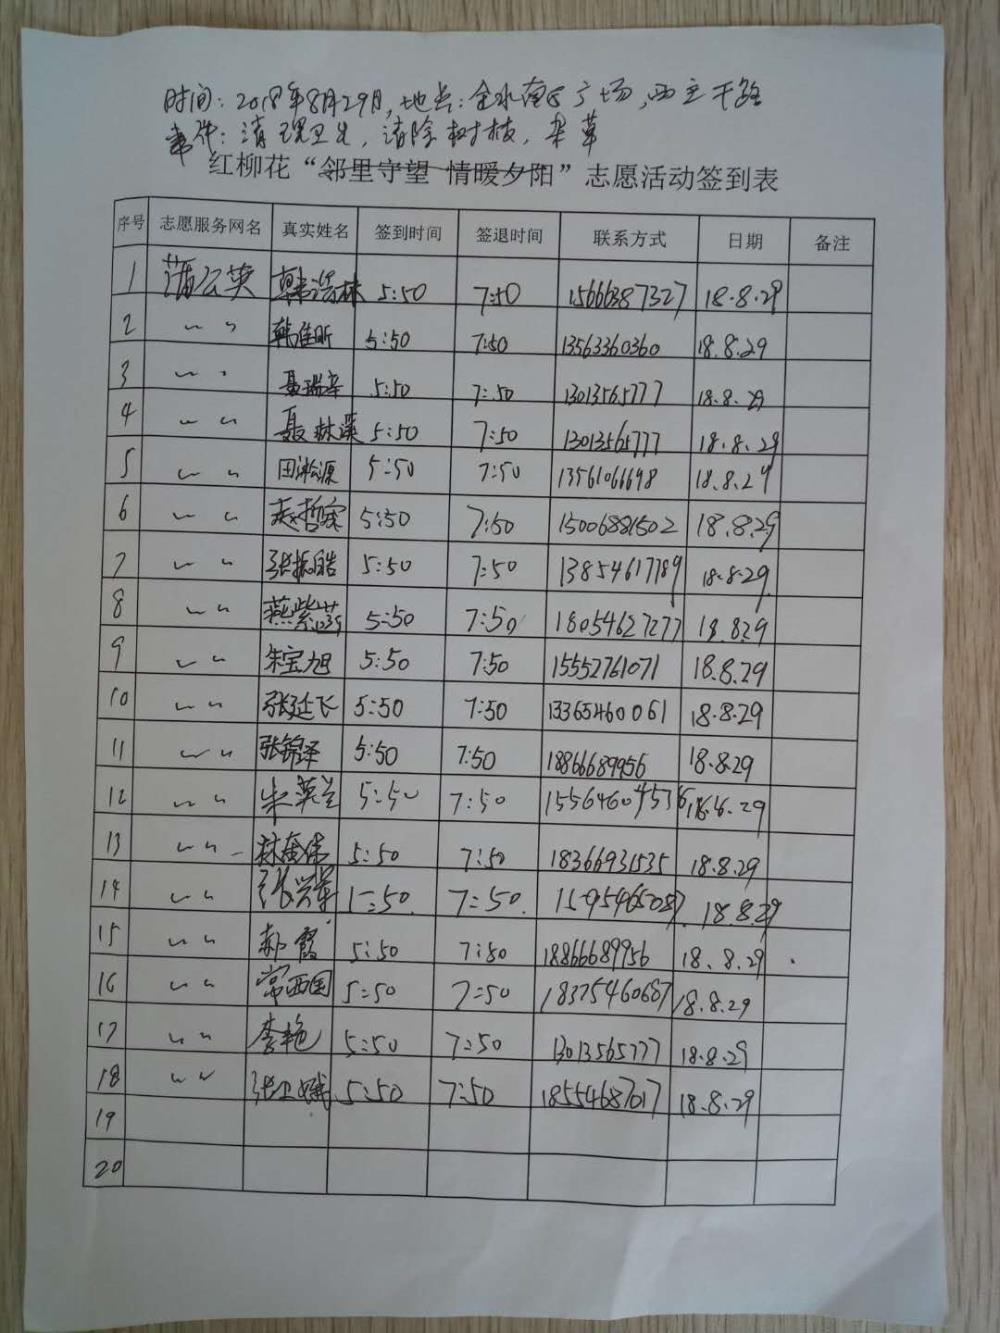 时间：2018年8月29月，地点：金水南区广场，西主干路
事件：清理卫生，清除树枝，杂草
红柳花“邻里守望 情暖夕阳”志愿活动签到表
序号 志愿服务网名 真实姓名 签到时间 签退时间 联系方式 日期 备注
1 蒲公英 韩浩林 5:50 7:50 15666387327 18.8.29
2 〃 韩佳昕 5:50 7:50 13563360360 18.8.29
3 〃 聂瑞辛 5:50 7:50 13013565777 18.8.29
4 〃 聂林溪 5:50 7:50 13013565777 18.8.29
5 〃 田淞源 5:50 7:50 13561066698 18.8.29
6 〃 赵哲霖 5:50 7:50 15006881502 18.8.29
7 〃 张振皓 5:50 7:50 13854617789 18.8.29
8 〃 燕紫 5:50 7:50 18054627277 18.8.29
9 〃 朱宝旭 5:50 7:50 15552761071 18.8.29
10 〃 张延飞 5:50 7:50 13365460061 18.8.29
11 〃 张锦泽 5:50 7:50 18866689956 18.8.29
12 〃 朱英兰 5:50 7:50 15564604536 18.8.29
13 〃 林奎伟 5:50 7:50 18366931535 18.8.29
14 〃 张兴军 5:50 7:50 18.8.29
15 〃 郝霞 5:50 7:50 18866689956 18.8.29
16 〃 常西国 5:50 7:50 18375460687 18.8.29
17 〃 李艳 5:50 7:50 13013565777 18.8.29
18 〃 张卫娥 5:50 7:50 18554687017 18.8.29
19
20